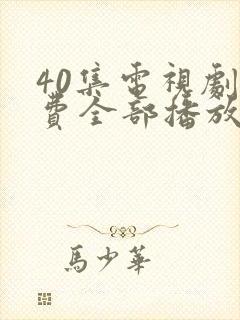 40集電視劇
費全部播放
馬少華